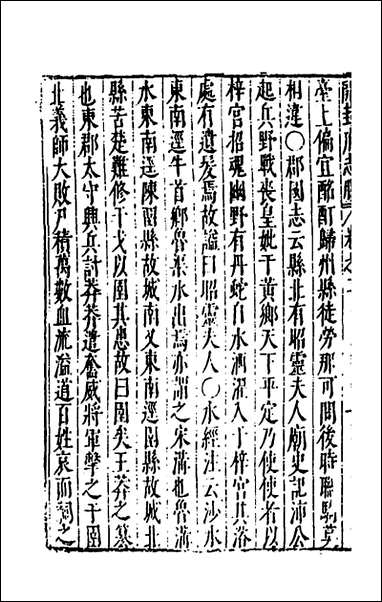 臺上偏宜酩酊歸州縣徒勞那可問後時聯騎莫
相違○郡國志云縣北有昭靈夫人廟史記沛公
起兵野戰喪皇妣于黃鄉天下平定乃使使者以
梓宮招魂幽野有丹蛇自水洒濯入于梓宮其浴
處有遺髮焉故謚曰昭靈夫人○水經注云沙水
東南逕牛首鄉魯渠水出焉亦謂之宋溝也魯溝
水東南逕陳留縣故城南又東南逕圉縣故城北
縣苦楚難修干戈以圉其患故曰圉矣王莽之簒
也東郡太守興兵討莽莽遣奮威將軍擊之于圉
北義師大敗尸積萬數血流溢道百姓哀而祠之